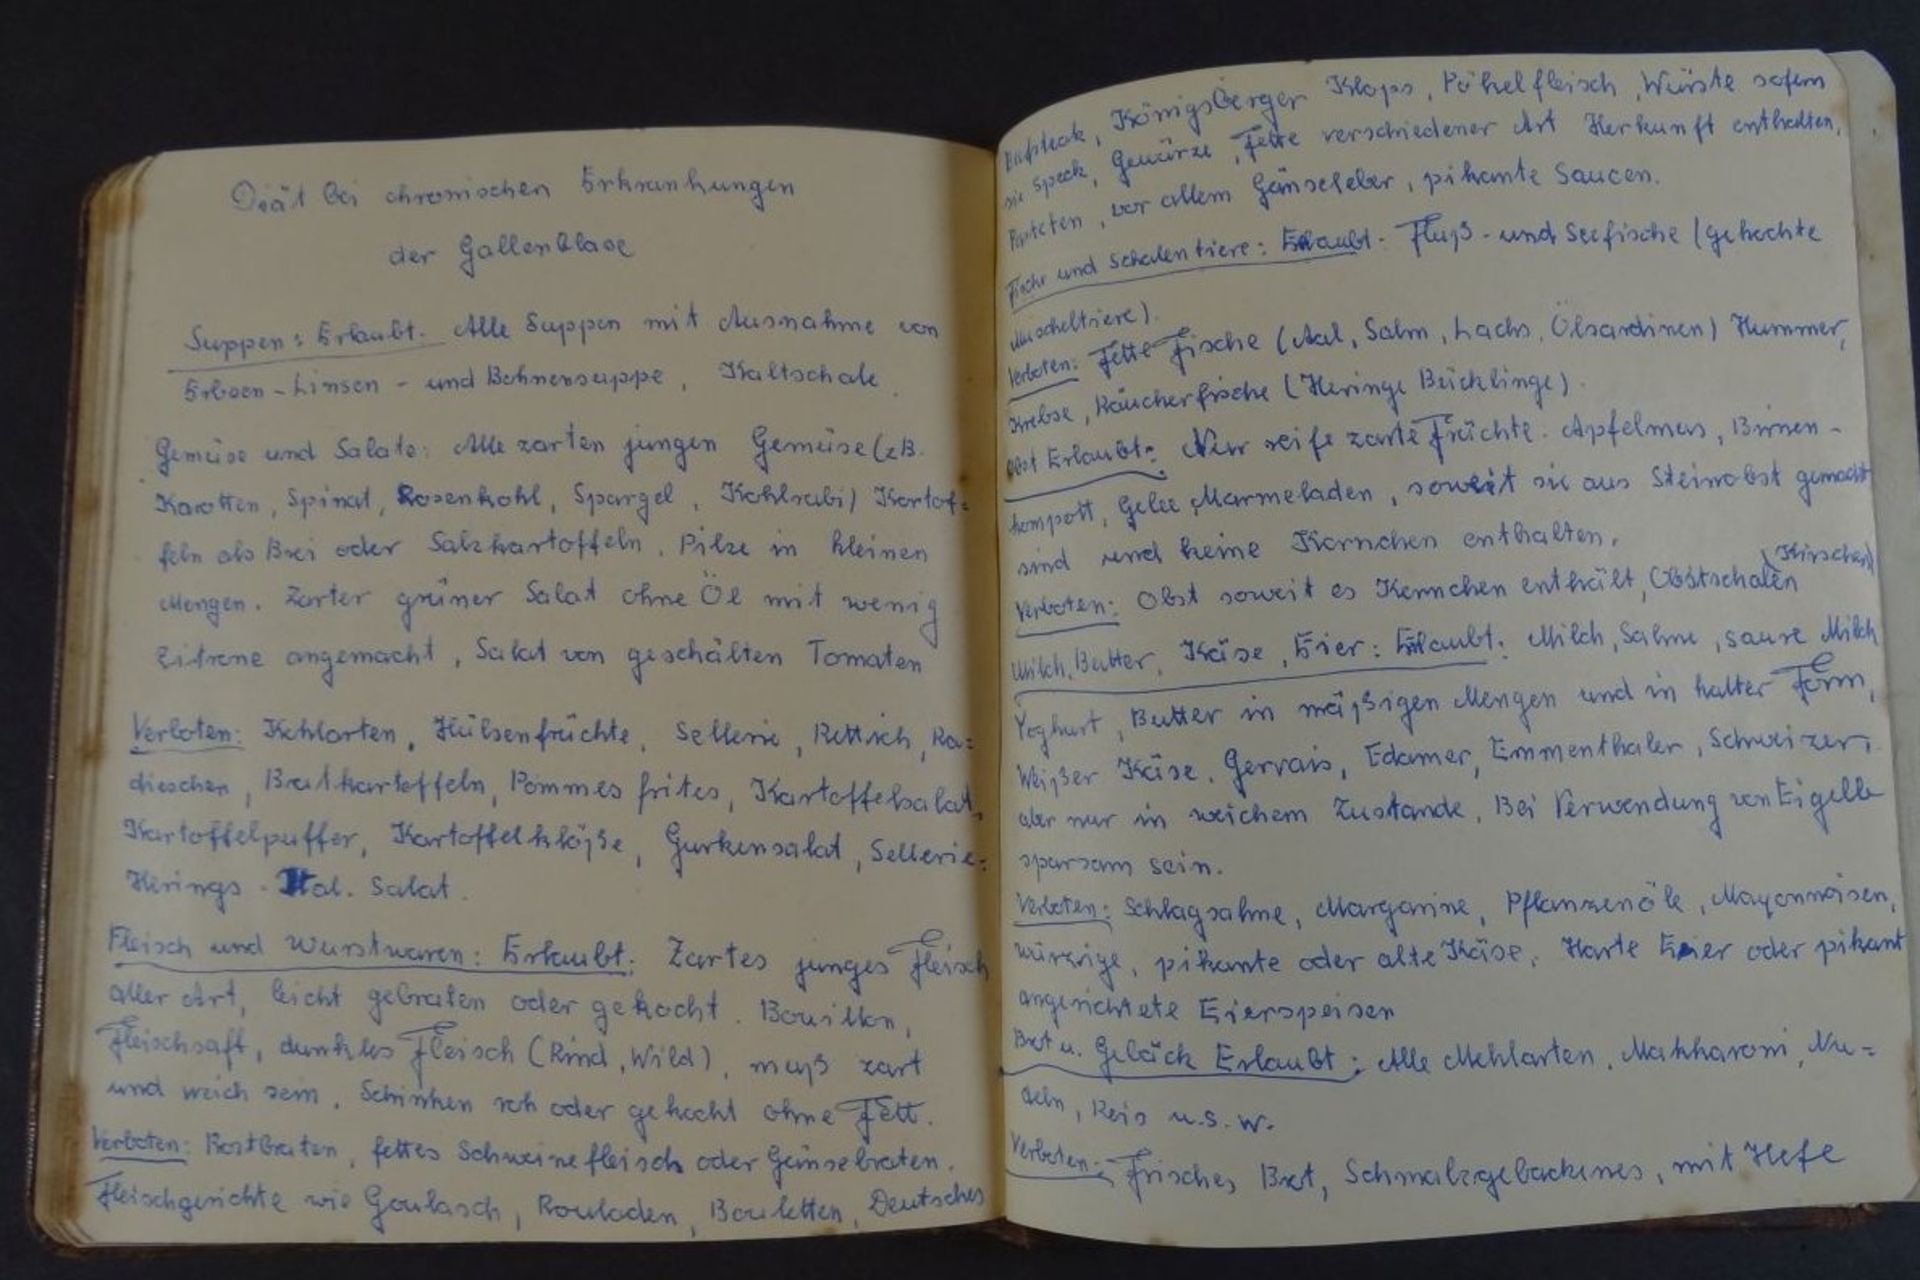 Diät bei chronischen Erkrankungen
der Gallenblase
Suppen: Erlaubt. Alle Suppen mit Ausnahme von
Erbsen-Linsen- und Bohnensuppe, Kaltschale.
Gemüse und Salate: Alle zarten jungen Gemüse (zB.
Karotten, Spinat, Rosenkohl, Spargel, Kohlrabi) Kartof=
feln als Brei oder Salzkartoffeln. Pilze in kleinen
Mengen. Zarter grüner Salat ohne Öl mit wenig
Zitrone angemacht, Salat von geschälten Tomaten
Verboten: Kohlarten, Hülsenfrüchte, Sellerie, Rettich, Ra=
dieschen, Bratkartoffeln, Pommes frites, Kartoffelsalat,
Kartoffelpuffer, Kartoffelklöße, Gurkensalat, Sellerie=
Herings- Ital. Salat.
Fleisch und Wurstwaren: Erlaubt: Zartes junges Fleisch
aller Art, leicht gebraten oder gekocht. Bouillon,
Fleischsaft, dunkles Fleisch (Rind, Wild), muß zart
und weich sein. Schinken roh oder gekocht ohne Fett.
Verboten: Rostbraten, fettes Schweinefleisch oder Gänsebraten.
Fleischgerichte wie Goulasch, Rouladen, Bouletten, Deutsches
Königsberger Klops, Pökelfleisch, Würste sofern
sie Speck, Gewürze, Fette verschiedener Art Herkunft enthalten,
Pasteten, vor allem Gänseleber, pikante Saucen.
Fische und Schalentiere: Erlaubt. Fluß- und Seefische (gekochte
Muscheltiere).
Verboten: Fette Fische (Aal, Salm, Lachs, Ölsardinen) Hummer,
Krebse, Räucherfische (Heringe Bücklinge).
Obst Erlaubt: Nur reife zarte Früchte. Apfelmus, Birnen-
kompott, Gelee, Marmeladen, soweit sie aus Steinobst gemacht
sind und keine Körnchen enthalten.
Verboten: Obst soweit es Kernchen enthält, Obstschalen (Kirschen)
Milch, Butter, Käse, Eier: Erlaubt: Milch, Sahne, saure Milch
Yoghurt, Butter in mäßigen Mengen und in kalter Form,
Weißer Käse, Gervais, Edamer, Emmenthaler, Schweizer,
aber nur in weichem Zustande, Bei Verwendung von Eigelb
sparsam sein.
Verboten: Schlagsahne, Margarine, Pflanzenöle, Mayonnaisen,
würzige, pikante oder alte Käse, Harte Eier oder pikant
angerichtete Eierspeisen
Brot u. Gebäck Erlaubt: Alle Mehlarten, Makkaroni, Nu=
deln, Reis u.s.w.
Verboten: Frisches Brot, Schmalzgebackenes, mit Hefe